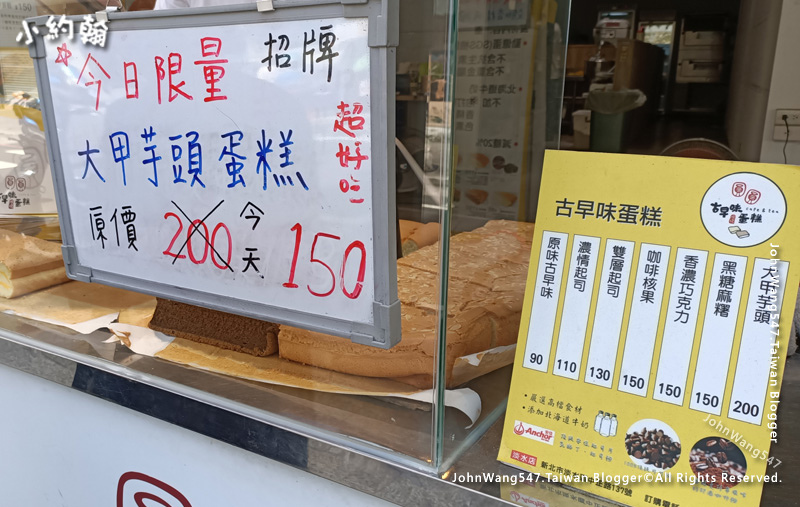 小約翰
今日限量 招牌
大甲芋頭蛋糕
超好吃
原價 200 今天 150
古早味蛋糕
古早味蛋糕
原味古早味 90
濃情起司 110
雙層起司 130
咖啡核果 150
香濃巧克力 150
黑糖麻糬 150
大甲芋頭 200
•嚴選高檔食材
•添加北海道牛奶
Anchor
淡水店
JohnWang547.Taiwan Blogger
JohnWang547
JohnWang547.Taiwan Blogger©All Rights Reserved.